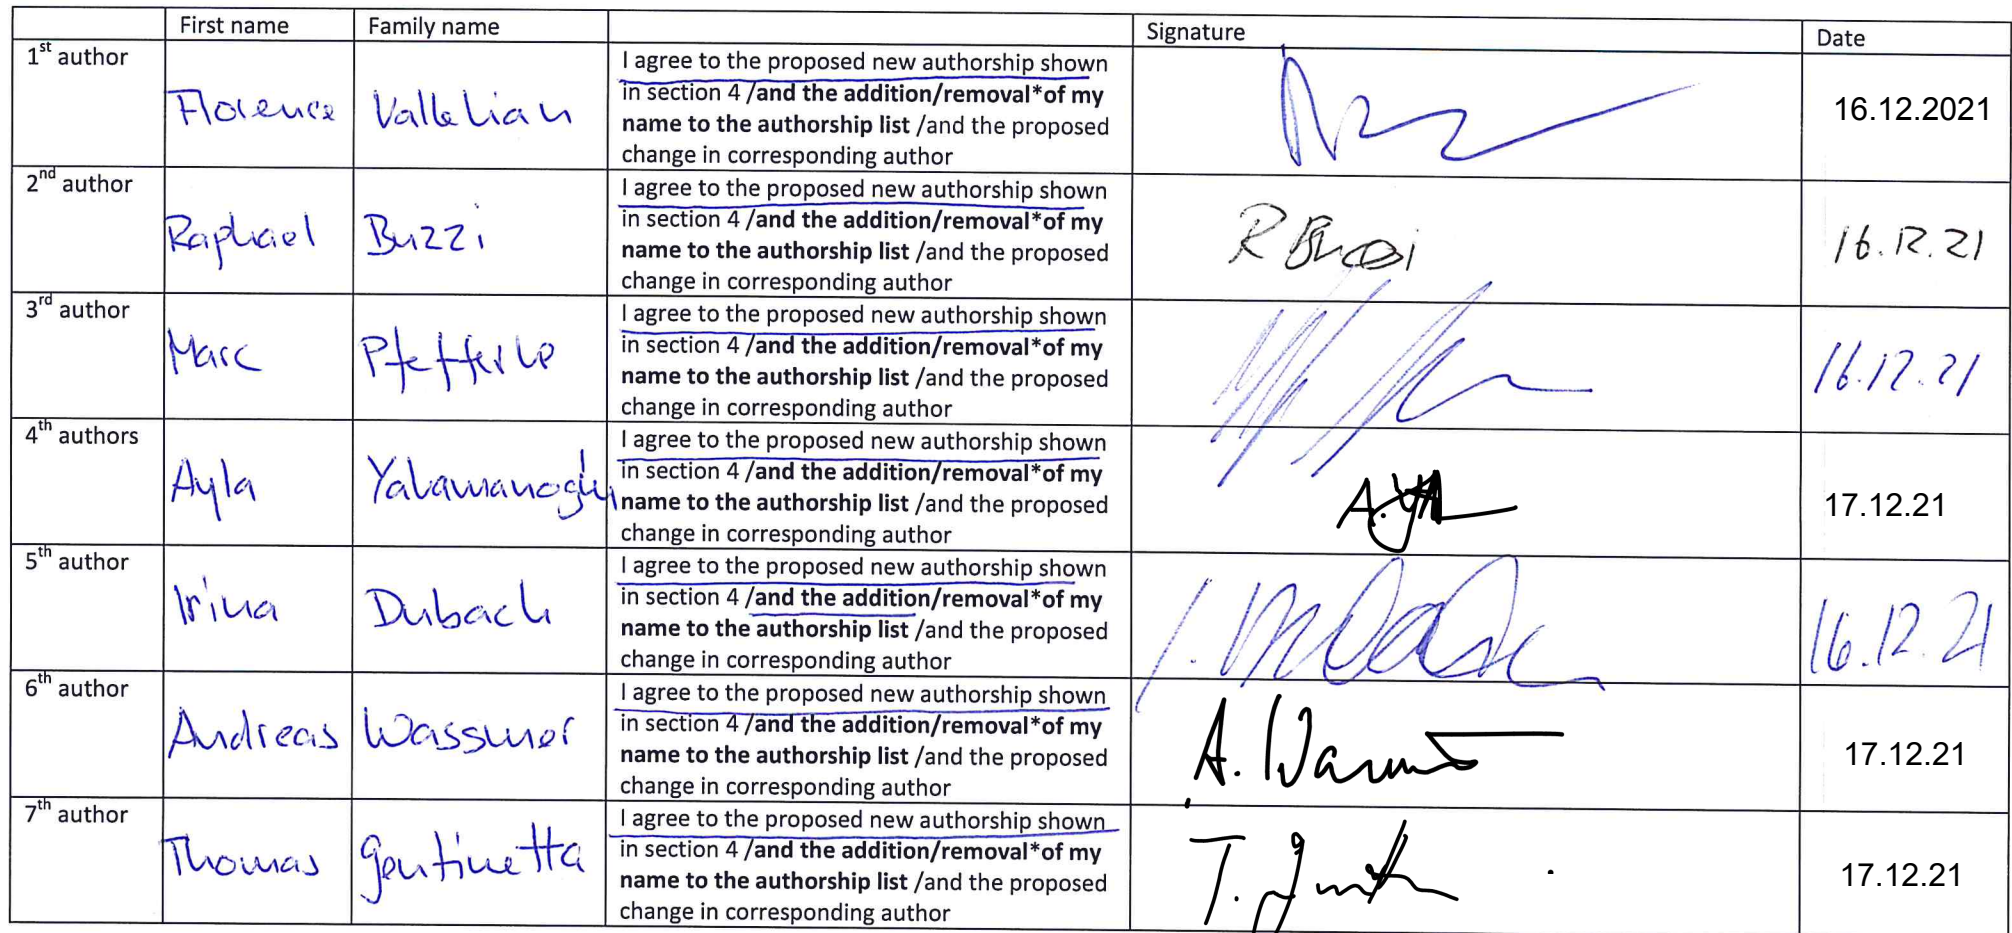 First name Family name Signature Date
1st author Florence Vallelian I agree to the proposed new authorship shown 16.12.2021
in section 4 /and the addition/removal*of my
name to the authorship list /and the proposed
change in corresponding author
2nd author Raphael Buzzi I agree to the proposed new authorship shown R Buzzi 16.12.21
in section 4 /and the addition/removal*of my
name to the authorship list /and the proposed
change in corresponding author
3rd author Marc Pfefferlé I agree to the proposed new authorship shown 16.12.21
in section 4 /and the addition/removal*of my
name to the authorship list /and the proposed
change in corresponding author
4th authors Ayla Yalamanoglu I agree to the proposed new authorship shown 17.12.21
in section 4 /and the addition/removal*of my
name to the authorship list /and the proposed
change in corresponding author
5th author Irina Dubach I agree to the proposed new authorship shown 16.12.21
in section 4 /and the addition/removal*of my
name to the authorship list /and the proposed
change in corresponding author
6th author Andreas Wassmer I agree to the proposed new authorship shown 17.12.21
in section 4 /and the addition/removal*of my
name to the authorship list /and the proposed
change in corresponding author
7th author Thomas Gentinetta I agree to the proposed new authorship shown 17.12.21
in section 4 /and the addition/removal*of my
name to the authorship list /and the proposed
change in corresponding author